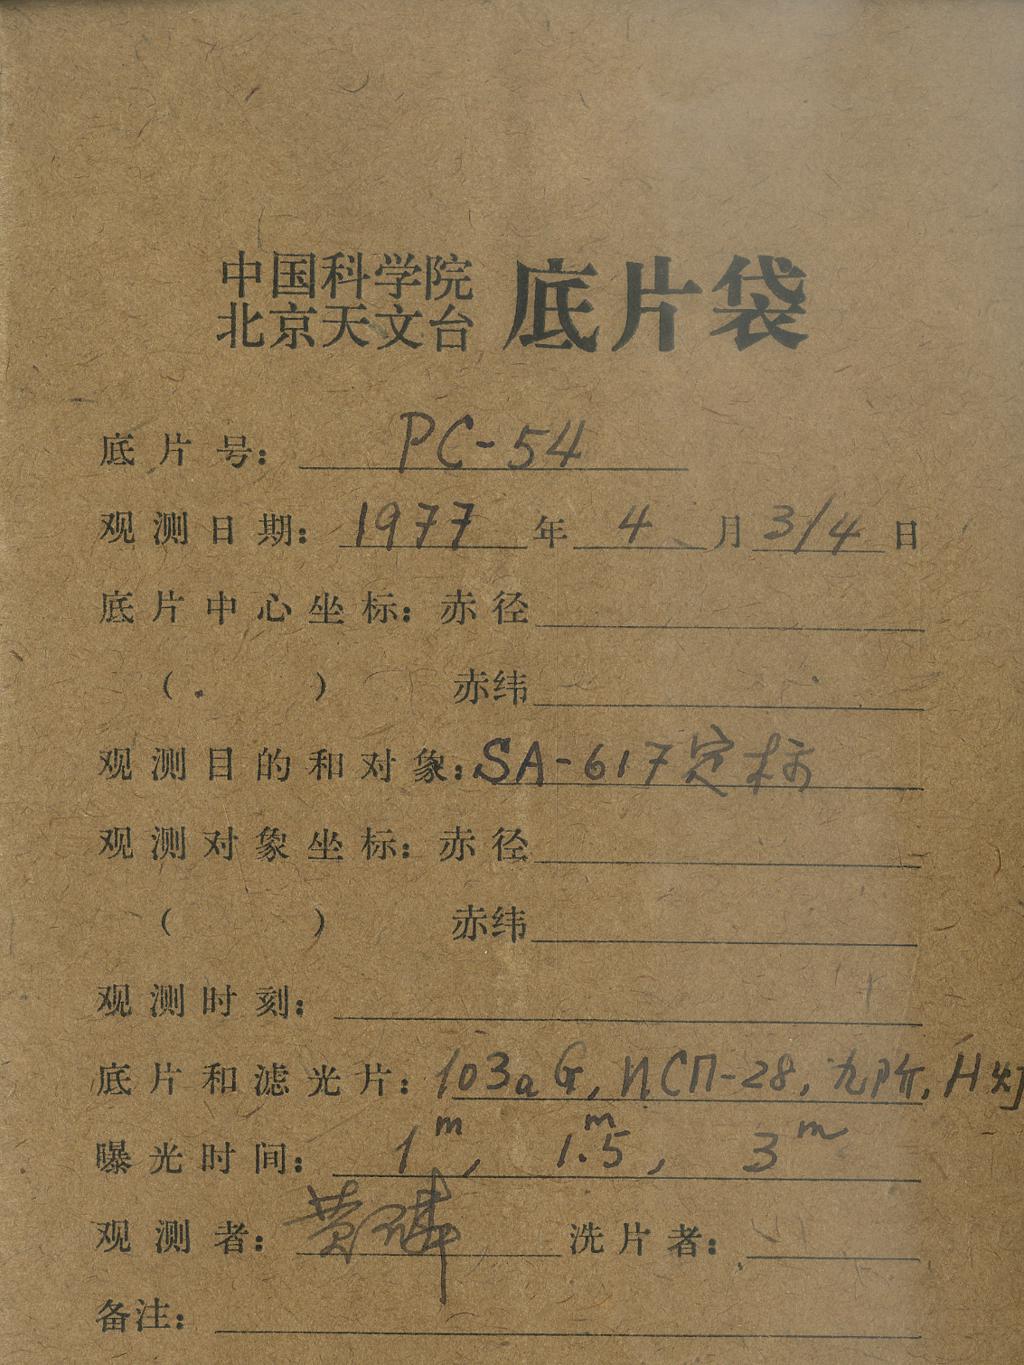 中国科学院
北京天文台 底片袋
底片号: PC-54
观测日期: 1977年 4月 3/4日
底片中心坐标: 赤径
( ) 赤纬
观测目的和对象: SA-617定标
观测对象坐标: 赤径
( ) 赤纬
观测时刻:
底片和滤光片: 103aG, ИСП-28, 九阶, H灯
曝光时间: 1m, 1.5m, 3m
观测者: 黄磷 洗片者:
备注: